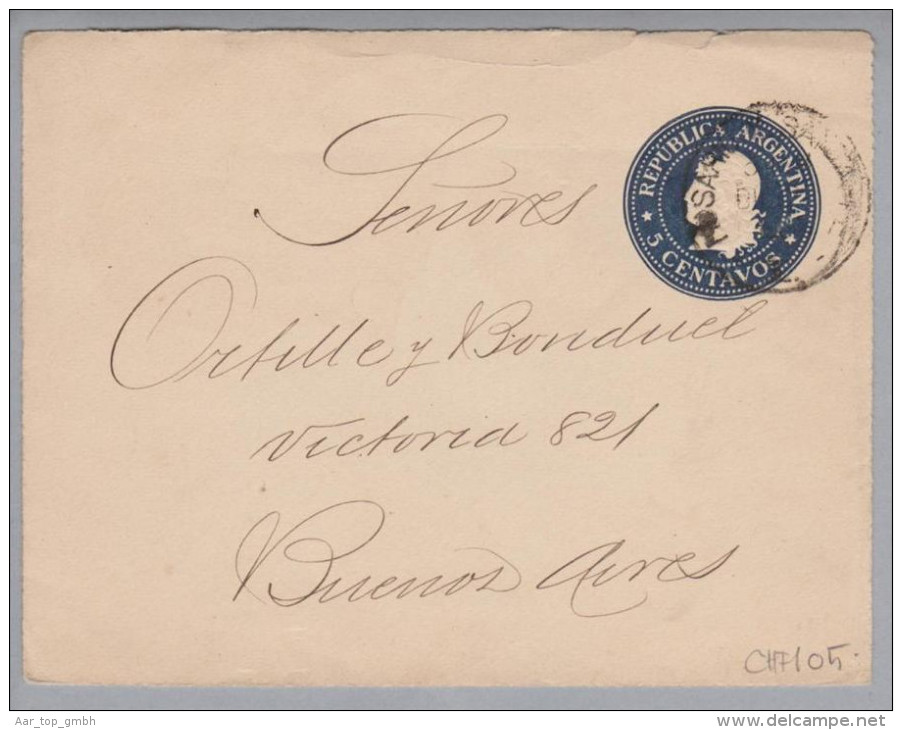 REPÚBLICA ARGENTINA
5 CENTAVOS
ROSAR
Señores
Ortille y Bonduel
Victoria 821
Buenos Aires
CHF105.
Aar_top_gmbh
www.delcampe.net